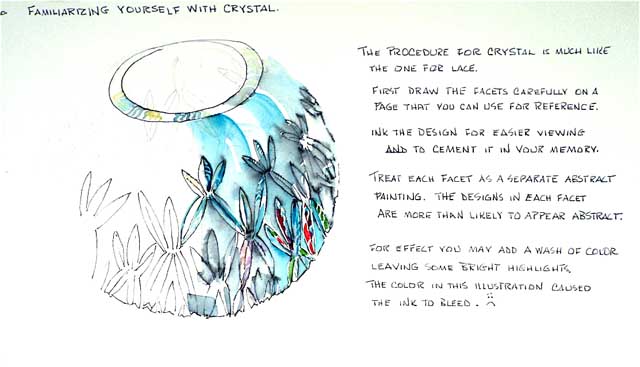 FAMILIARIZING YOURSELF WITH CRYSTAL.
THE PROCEDURE FOR CRYSTAL IS MUCH LIKE
THE ONE FOR LACE.
FIRST DRAW THE FACETS CAREFULLY ON A
PAGE THAT YOU CAN USE FOR REFERENCE.
INK THE DESIGN FOR EASIER VIEWING
AND TO CEMENT IT IN YOUR MEMORY.
TREAT EACH FACET AS A SEPARATE ABSTRACT
PAINTING. THE DESIGNS IN EACH FACET
ARE MORE THAN LIKELY TO APPEAR ABSTRACT.
FOR EFFECT YOU MAY ADD A WASH OF COLOR
LEAVING SOME BRIGHT HIGHLIGHTS.
THE COLOR IN THIS ILLUSTRATION CAUSED
THE INK TO BLEED.